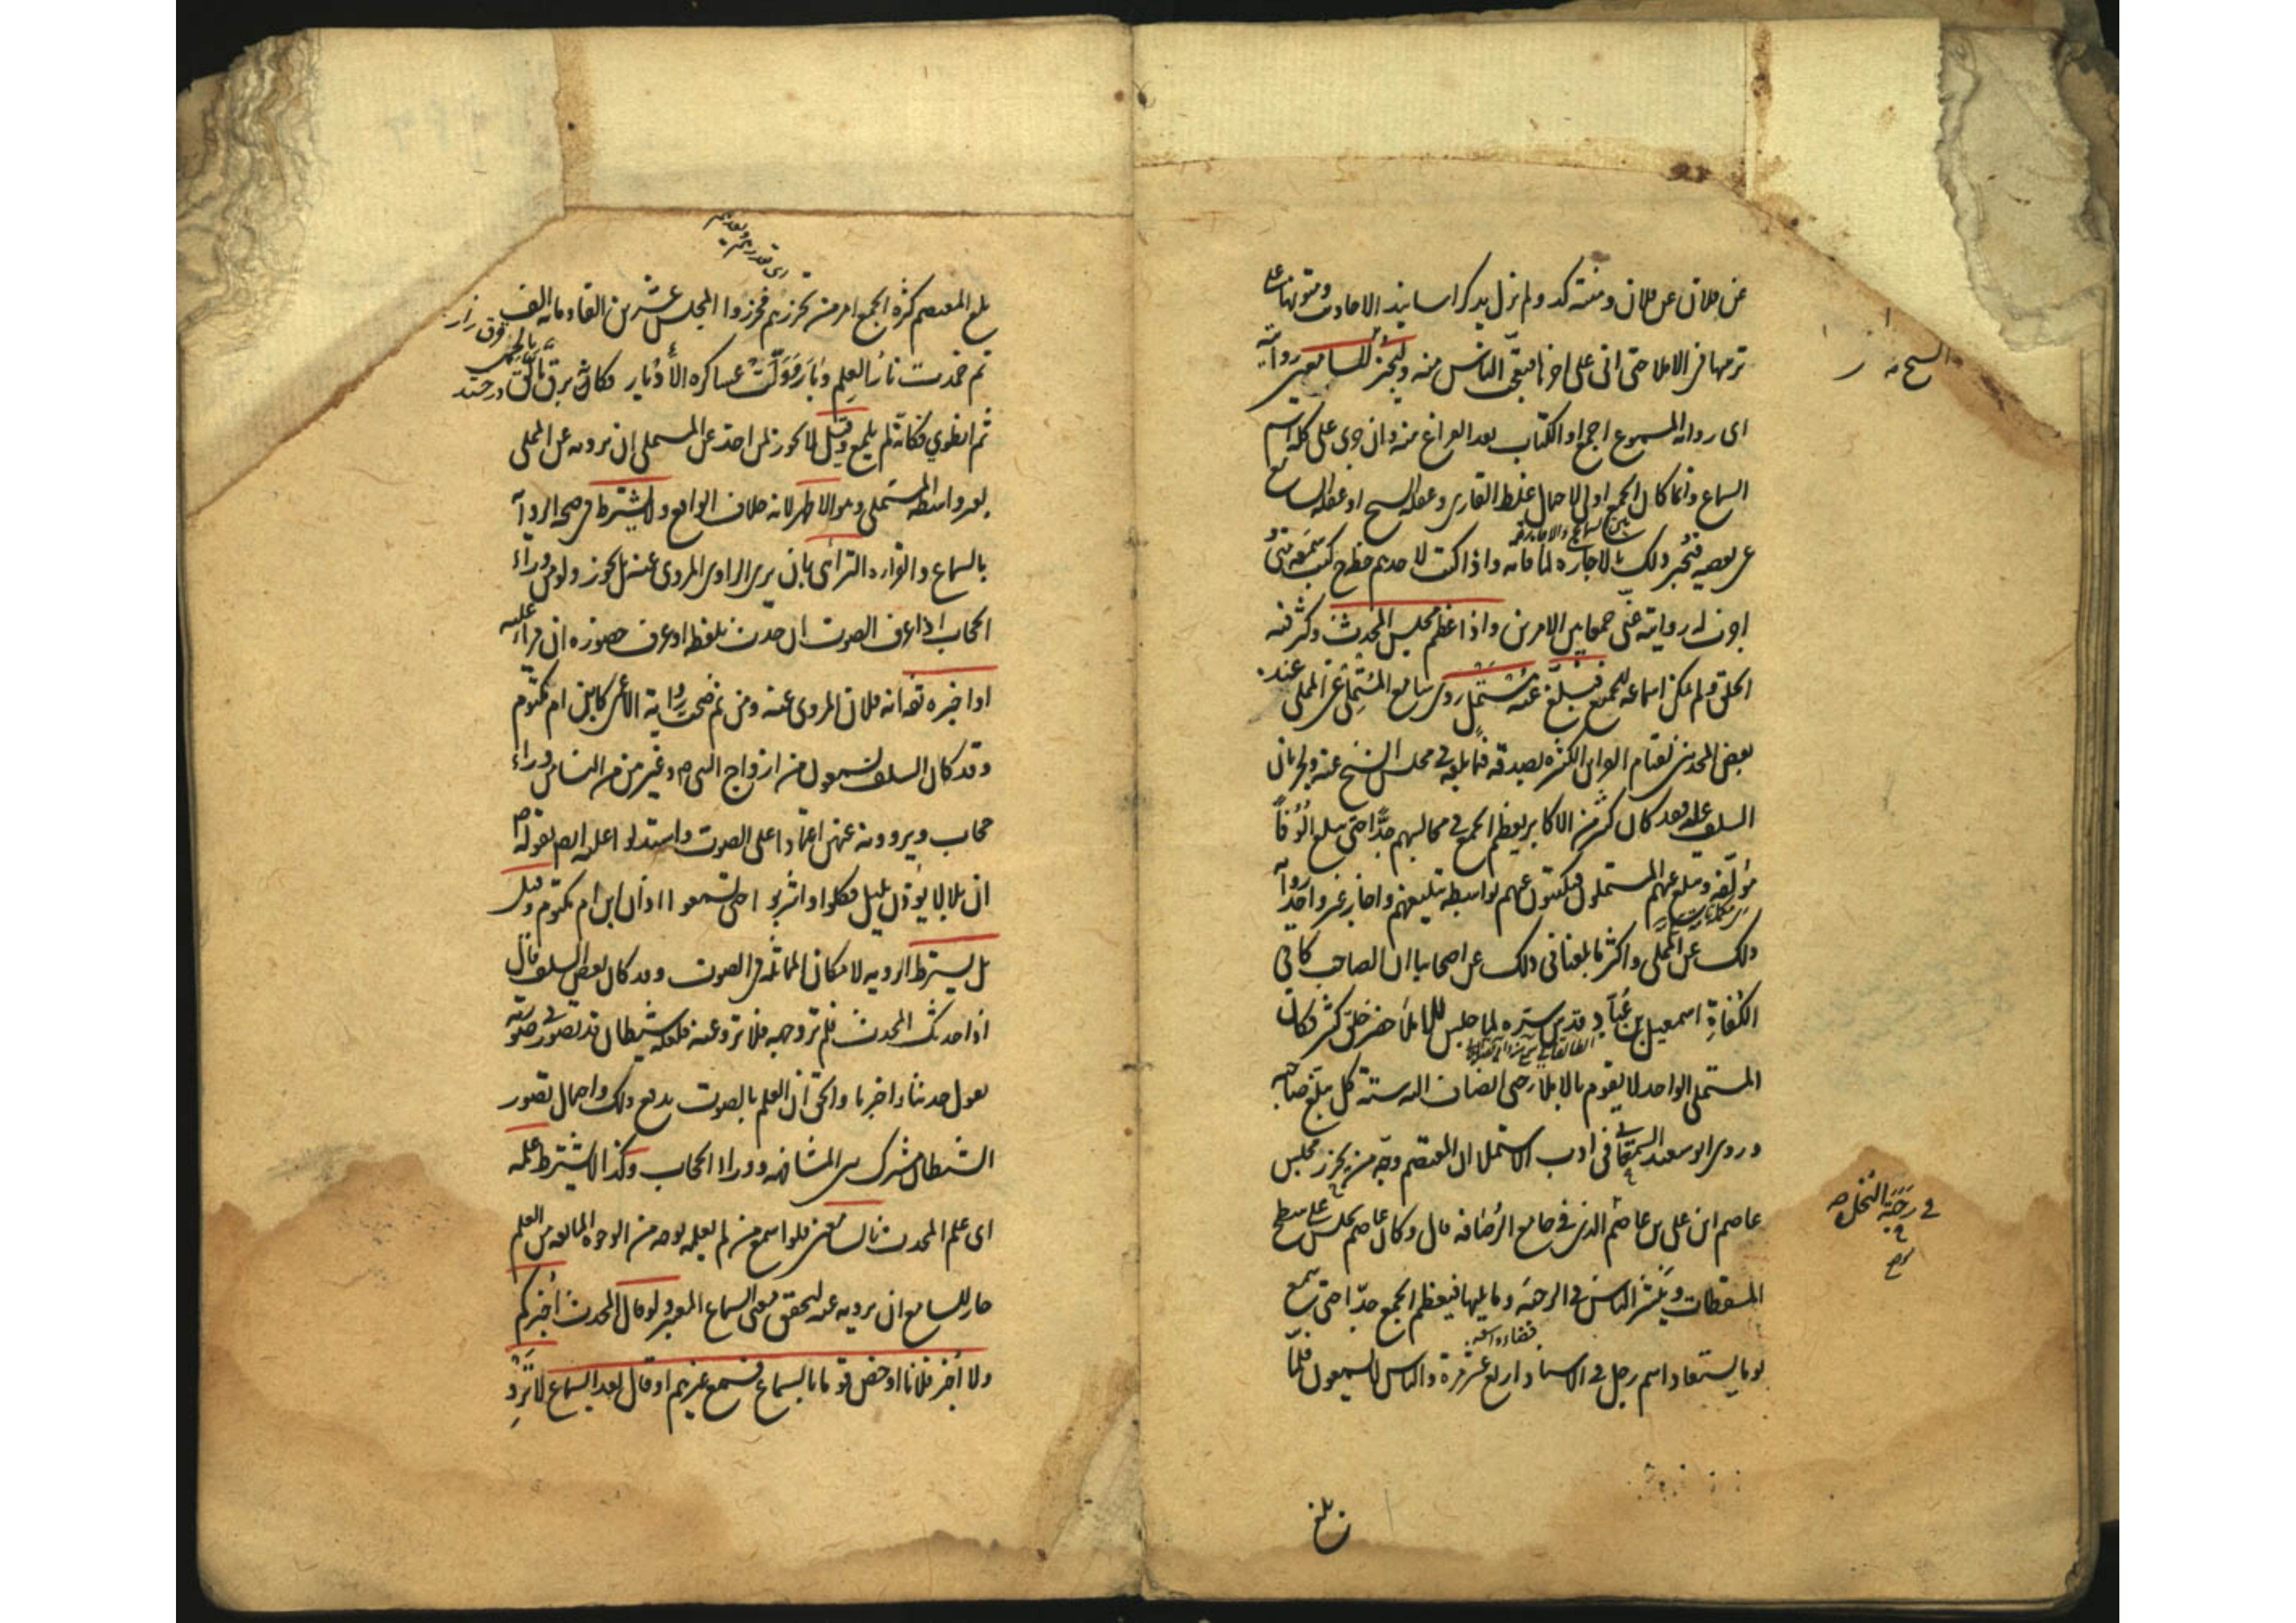 عن فلان عن فلان ومنته كذا ولم نزل يذكر اسانيد الاحاديث ومتونها على
ترتيبها في الاملا حتى اتى على اخرها فبقي الناس منه وليجز للسامعين روايته
اى رواية المسموع اجمع او الكتاب بعد الفراغ منه وان جرى على كله اسم
السماع وانما كان الجمع اولى لاحتمال غلط القارى وغفلة الشيخ او غفلة السامع
عن بعضه فيجبر ذلك بالاجازة لما فاته واذا كتب لاحدهم خطه كتب سمعه مني و
بين السماع والاجازة
اجزت له روايته عني جمعا بين الامرين واذا عظم مجلس المحدث وكثر فيه
الخلق ولم يمكن اسماعه للجميع فبلغ عنه مستمل روى سامع المستملى عن المملى عند
بعض المحدثين لقيام القراين الكثيرة بصدقه فيما بلغه في مجلس الشيخ عنه ولجريان
السلف عليه فقد كان كثير من الاكابر يعظم الجمع في مجالسهم جدا حتى يبلغ الوفا
مؤلفة ويبلغ عنهم المستملون فيكتبون عنهم بواسطة تبليغهم واجاز غير واحد رواية
ذلك عن المملى واكثر ما بلغنا في ذلك عن اصحابنا ان الصاحب كافي
الكفاة اسمعيل بن عباد قدس سره لما جلس للاملا حضر خلق كثير فكان
المستملى الواحد لا يقوم بالاملا حتى انضاف اليه ستة كل يبلغ صاحبه
وروى ابو سعيد السمعاني في ادب الاستملا ان المعتصم وجه من يحزر مجلس
عاصم ابن علي بن عاصم الذي في جامع الرصافة قال وكان عاصم يجلس على سطح
المسقطات وينتشر الناس في الرحبة وما يليها فيعظم الجمع جدا حتى سمع
فضاء واسعة
يوما يستعاد اسم رجل في الاسناد اربع عشر مرة والناس لا يسمعون فلما
في رحبة النخل صح
بلغ
اى قدرهم
بلغ المعتصم كثرة الجمع امر من يحزرهم فحزروا المجلس عشرين الفا ومائة الف
ثم خمدت نار العلم وبار وولت عساكره الأدبار فكانه برق تألق بالحمى
ثم انطوي فكانه لم يلمع وقيل لا يجوز لمن اخذ عن المستملى ان يرويه عن المملى
بغير واسطة المستملى وهو الاظهر لانه خلاف الواقع ولا يشترط في صحة الرواية
بالسماع والقراءة الترائى بان يرى الراوى المروى عنه بل يجوز ولو من وراء
الحجاب اذا عرف الصوت ان حدث بلفظه او عرف حضوره ان قرا عليه
او اخبره ثقة انه فلان المروى عنه ومن ثم صحت رواية الأعمى كابن ام مكتوم
وقد كان السلف يسمعون من ازواج النبى ص وغيرهن من الناس وراء
حجاب ويروونه عنهن اعتمادا على الصوت واستدلوا عليه ايضا بقوله ص
ان بلالا يؤذن بليل فكلوا واشربوا حتى تسمعوا اذان ابن ام مكتوم وقيل
بل يشترط الروية لامكان المماثلة في الصوت وقد كان بعض السلف قال
اذا حدثك المحدث فلم تر وجهه فلا ترو عنه فلعله شيطان قد تصور في صورته
يقول حدثنا واخبرنا والحق ان العلم بالصوت يدفع ذلك واحتمال تصور
الشيطان مشترك بين المشافهة ووراء الحجاب وكذا لا يشترط علمه
اى علم المحدث بالسامعين فلو اسمع من لم يعلمه بوجه من الوجوه المانعة من العلم
جاز للسامع ان يرويه عنه لتحقق معنى السماع المعتبر ولو قال المحدث أخبركم
ولا أخبر فلانا او خص قوما بالسماع فسمع غيرهم او قال بعد السماع لا ترو